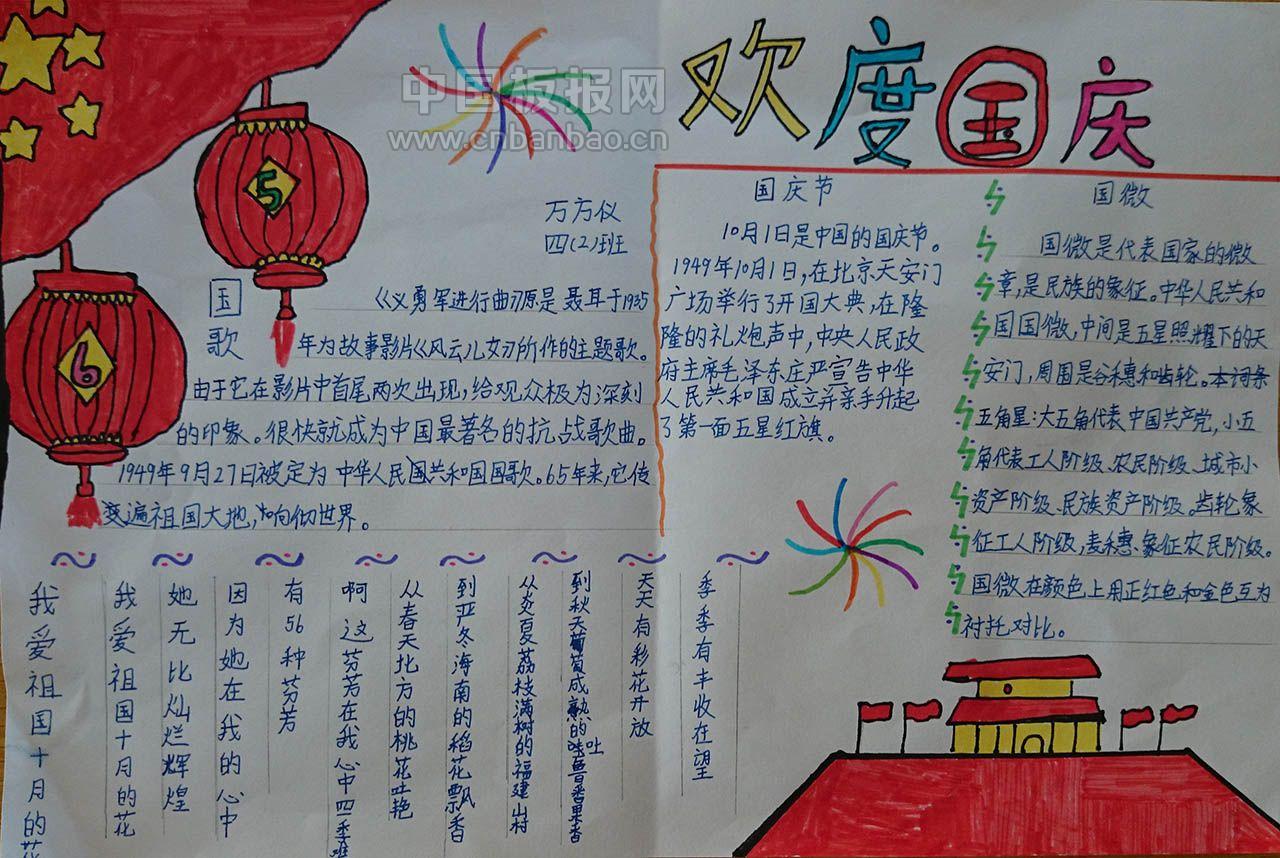 欢度国庆
中国板报网
www.cnbanbao.cn
5
6
万方仪
四(2)班
国歌
《义勇军进行曲》原是聂耳于1935
年为故事影片《风云儿女》所作的主题歌。
由于它在影片中首尾两次出现,给观众极为深刻
的印象。很快就成为中国最著名的抗战歌曲。
1949年9月27日被定为中华人民国共和国国歌。65年来,它传
变遍祖国大地,响彻世界。
国庆节
10月1日是中国的国庆节。
1949年10月1日,在北京天安门
广场举行了开国大典,在隆
隆的礼炮声中,中央人民政
府主席毛泽东庄严宣告中华
人民共和国成立并亲手升起
了第一面五星红旗。
国微
国微是代表国家的微
章,是民族的象征。中华人民共和
国国微,中间是五星照耀下的天
安门,周围是谷穗和齿轮。本词条
五角星:大五角代表中国共产党,小五
角代表工人阶级、农民阶级、城市小
资产阶级、民族资产阶级。齿轮象
征工人阶级,麦穗、象征农民阶级。
国微在颜色上用正红色和金色互为
衬托对比。
我爱祖国十月的花
我爱祖国十月的花
她无比灿烂辉煌
因为她在我的心中
有56种芬芳
啊这芬芳在我心中四季
从春天北方的桃花吐艳
到严冬海南的稻花飘香
从炎夏荔枝满树的福建山村
到秋天葡萄成熟的吐鲁番果香
天天有彩花开放
季季有丰收在望